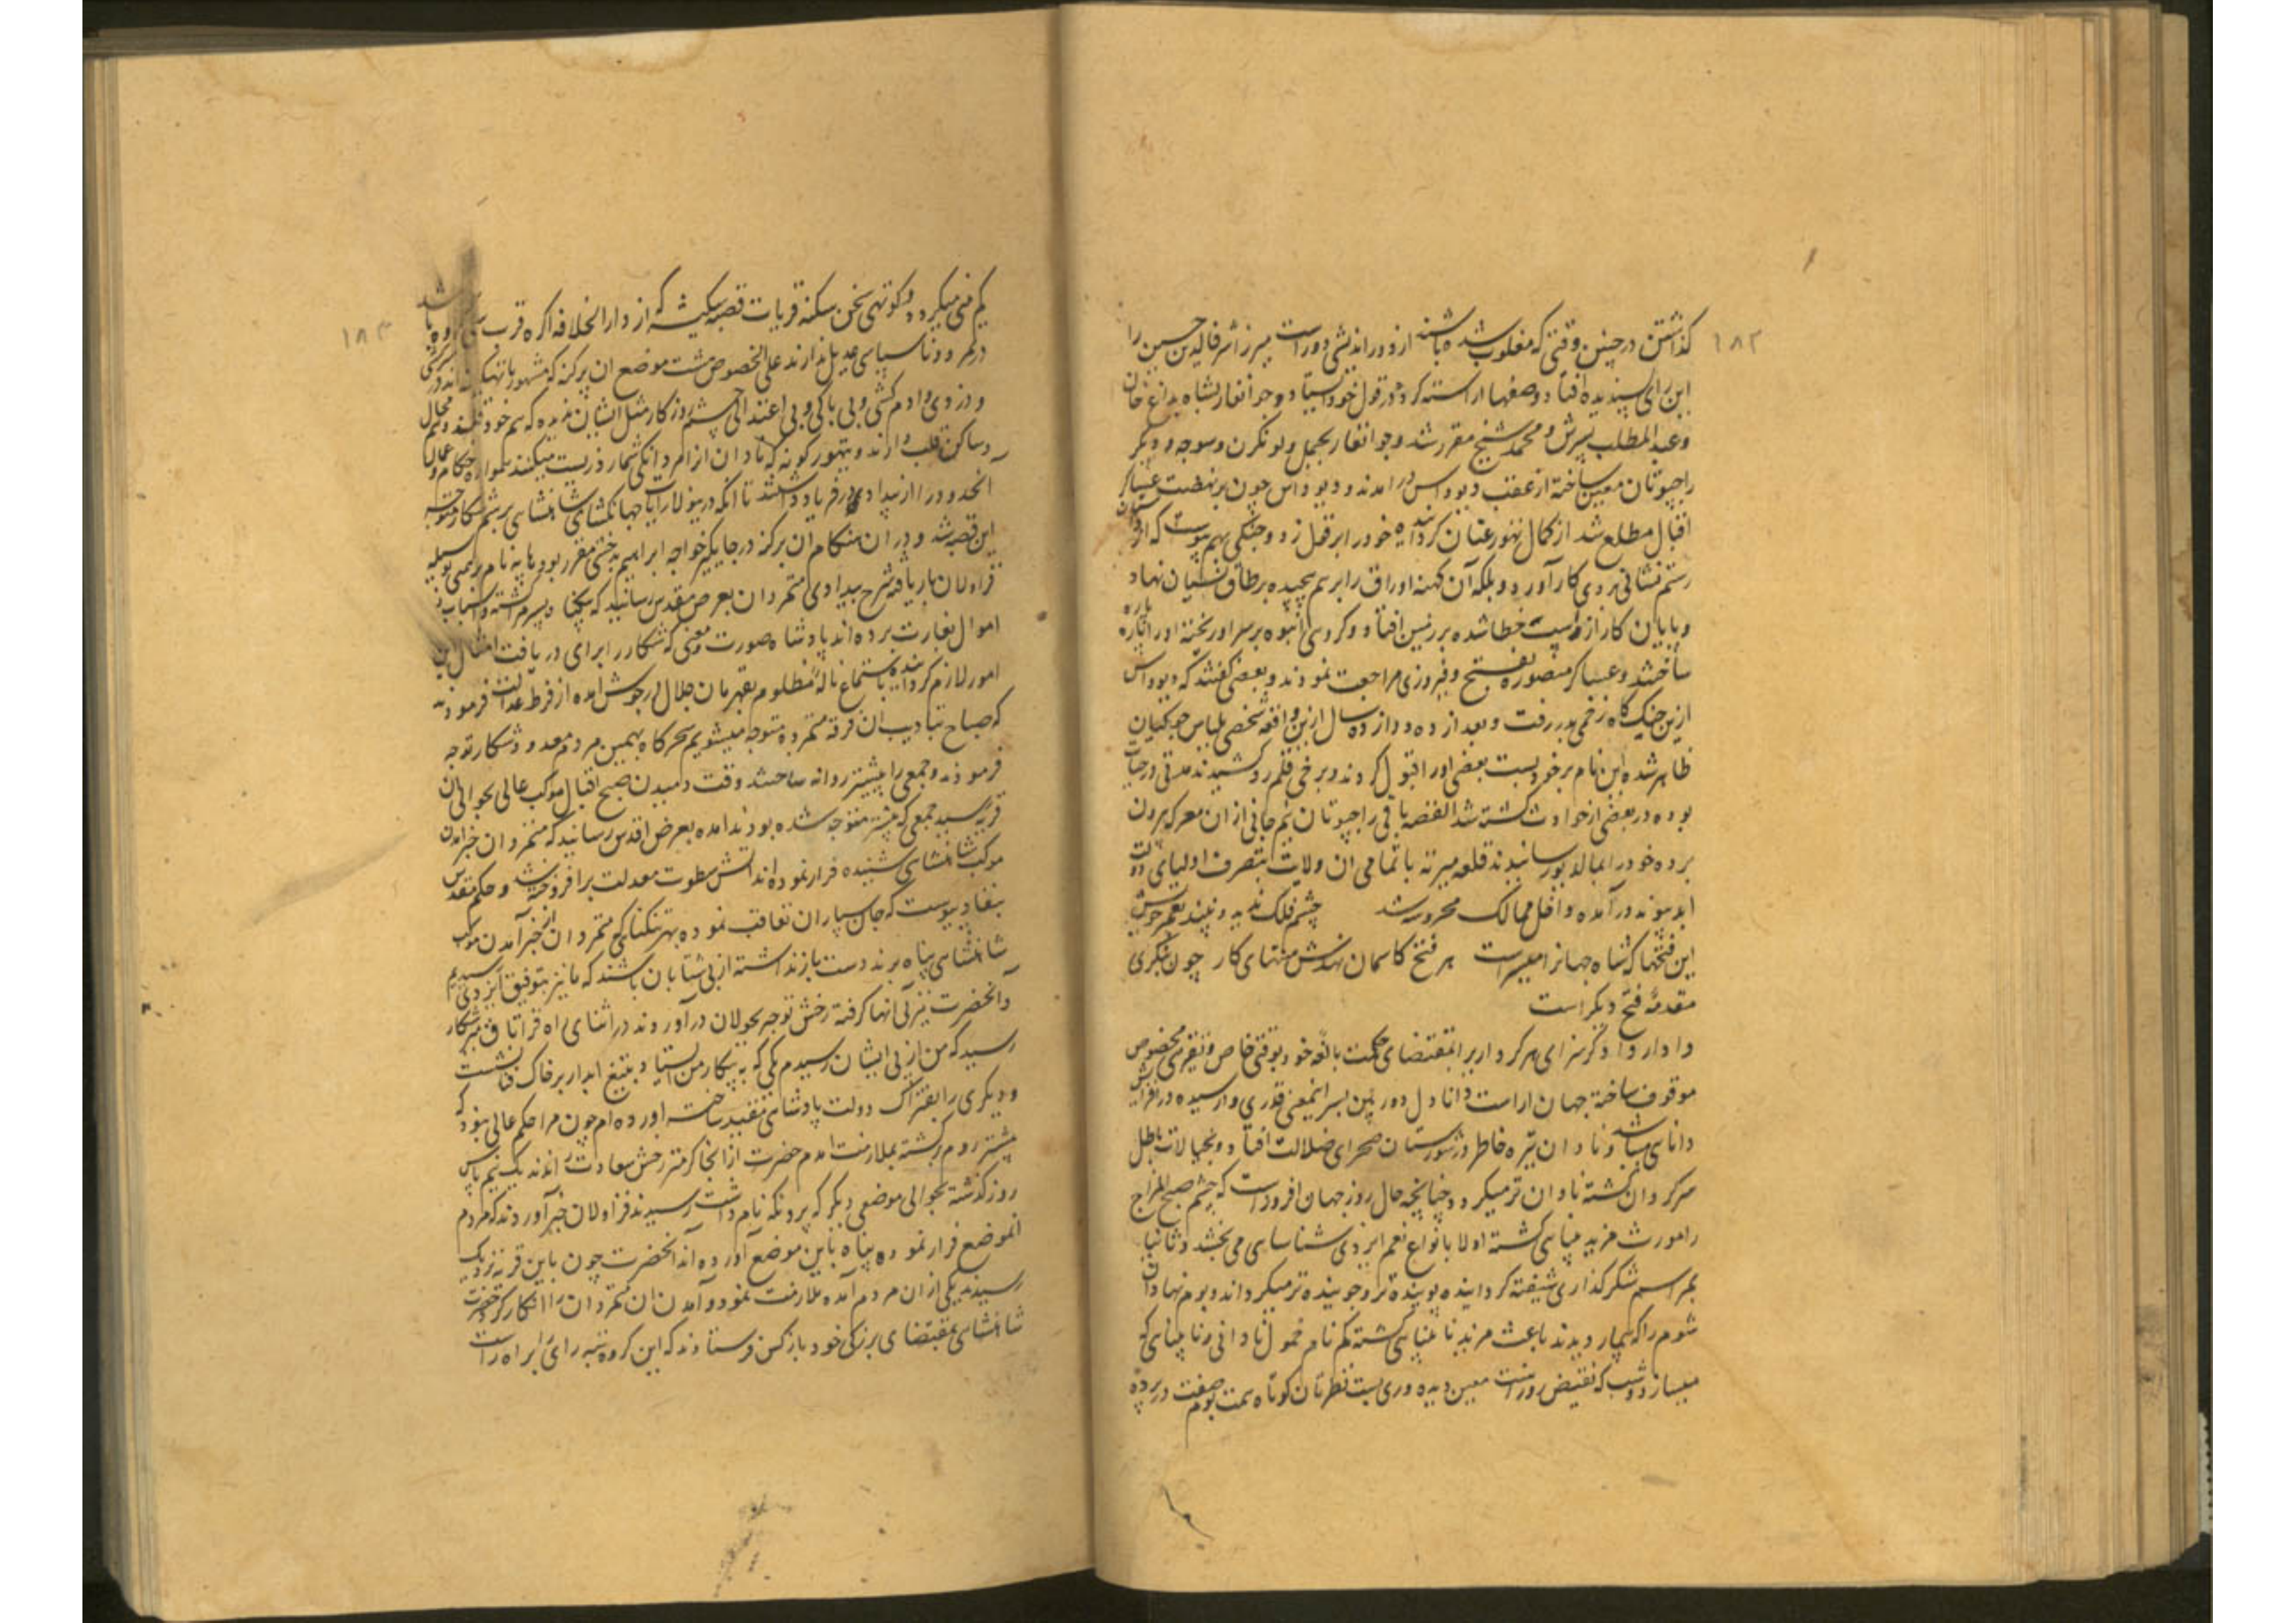 ۱۸۲
گذاشتن در چنین وقتی که مغلوب شده باشند از دوراندیشی دور است میرزا شرف الدین حسین را
این رای پسندیده افتاد و صفها آراسته کرد در قول خود ایستاد و جوانغار بشاه بداغ خان
و عبد المطلب پسرش و محمد شیخ مقرر شد و جوانغار بجیمل و لونکرن و سوجه و دیگر
راجپوتان معین ساخته از عقب دیوداس در آمدند و دیوداس چون بر نهضت عساکر
اقبال مطلع شد از کمال تهور عنان گردانیده خود را بر قول زد و جنگی بهم پیوست که از داستان
رستم نشانی بروی کار آورد و بلکه آن کهنه اوراق را بر هم پیچیده بر طاق نسیان نهاد
و بپایان کار از اسپ خطا شده بر زمین افتاد و گروهی انبوه بر سر او ریخته او را پاره پاره
ساختند و عساکر منصوره بفتح و فیروزی مراجعت نمودند و بعضی گفتند که دیوداس
ازین جنگ گاه زخمی بدر رفت و بعد از ده دوازده سال ازین واقعه شخصی بلباس جوگیان
ظاهر شده این نام بر خود بست بعضی او را قبول کردند و برخی قلم رد کشیدند مدتی در حیات
بوده در بعضی از حوادث کشته شد القصه باقی راجپوتان نیم جانی از ان معرکه بیرون
برده خود را بمالدیو رسانیدند قلعه میرته با تمامی ان ولایت بتصرف اولیای دولت
ابد پیوند در آمده داخل ممالک محروسه شد چشم فلک ندید و نبیند بعمر خویش
این فتحها که شاه جهان را میسر است هر فتح کاسمان نهدش منتهای کار چون بنگری
مقدمه فتح دیگر است
دادار دادگر سزای هر کردار برا بمقتضای حکمت بالغه خود بوقتی خاص و تقریبی مخصوص
موقوف ساخته جهان اراست دانا دل دوربین بسر اینمعنی قدری وارسیده در افزایش
دانای میباشد و نادان تیره خاطر در شورستان صحرای ضلالت افتاد و بخیالات باطل
سرگردان گشته نادان تر میگردد چنانچه حال روز جهان افروز است که چشم صحیح المزاج
را مورث مزید بینای گشته اولا بانواع نعم ایزدی شناسای می بخشد و ثانیا
بمراسم شکر گذاری شیفته گردانیده پوینده تر و جوینده تر میگرداند و بوم نهادان
شوم را که بیمار دیدند باعث مزید نابینای گشته گم نام خمول نادانی و نابینای
میسازد و شب که نقیض روز است معین دیده وری پست نظرتان کوتاه همت بوم صفت در پرده
۱۸۳
گم منی میگردد و کوتهی سخن سکنه قریات قصبه سکیت که از دار الخلافه اگره قرب سی کروه باشد
در تمرد و ناسپاسی عدیل ندارند علی الخصوص هشت موضع ان پرگنه که مشهور باتهیگره اند در سرکشی
و دزدی و ادم کشی و بی باکی و بی اعتدالی چشم روزگار مثل ایشان ندیده که هم خود قلبند و هم محال
و مساکن قلب دارند و تهور گونه که نادان از امردانگی شمارد زیست میکنند همواره حکام و عمال
آنحدود را از بیدادی در فریاد داشتند تا انکه درینولا رایات جهانگشای شاهنشاهی برسم شکار متوجه
این قصبه شد و در ان هنگام ان پرگنه در جایگیر خواجه ابراهیم بدخشی مقرر بود هاپه نام برهمنی بوسیله
قراولان بار یافته شرح بیدادی متمردان بعرض مقدس رسانید که بیگناه پسرم کشته و اسباب و
اموال بغارت برده اند پادشاه صورت و معنی که شکار را برای دریافت امثال این
امور لازم گردانیده باستماع ناله مظلوم قهرمان جلال در جوش امده از فرط عدالت فرمودند
که صباح بتادیب ان فرقه متمرده متوجه میشویم سحرگاه بهمین مردم معدود شکار توجه
فرمودند و جمعی را پیشتر روانه ساختند وقت دمیدن صبح اقبال موکب عالی بحوالی ان
قریه رسید جمعی که پیشتر متوجه شده بودند امده بعرض اقدس رسانید که متمردان خبر امدن
موکب شاهنشاهی شنیده فرار نموده اند اتش سطوت معدلت برافروخته شد و حکم مقدس
بنفاذ پیوست که جان سپاران تعاقب نموده بهر تنگنای که متمردان از خبر آمدن موکب
شاهنشاهی پناه برند دست باز نداشته از پی شتابان باشند که ما نیز بتوفیق ایزدی رسیدیم
و آنحضرت نیز پی انها گرفته رخش توجه بجولان در آوردند در اثنای راه قراتاق میر شکار
رسید که من از پی ایشان رسیدم یکی که به پیکار من ایستاد بتیغ ابدار بر خاک فنا نشست
و دیگری را بفتراک دولت پادشاهی مقید ساخته اورده ام چون مرا حکم عالی نبود که
پیشتر روم برگشته بملازمت امدم حضرت از انجا گرمتر رخش سعادت راندند یک نیم پاس
روز گذشته بحوالی موضعی دیگر که پرونکه نام داشت رسیدند قراولان خبر آوردند که مردم
انموضع فرار نموده پناه باین موضع آورده اند آنحضرت چون باین قریه نزدیک
رسیدند یکی از ان مردم آمده ملازمت نمود و آمدن ان متمردان را انکار کرد حضرت
شاهنشاهی بمقتضای بزرگی خود باز کس فرستادند که این گروه تیره رای را براه راست